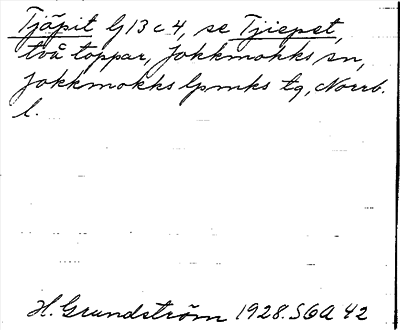 Tjäpit G13c4, se Tjiepet,
två toppar, Jokkmokks sn,
Jokkmokks lpmks tg, Norrb.
l.
H. Grundström 1928. SGA 42